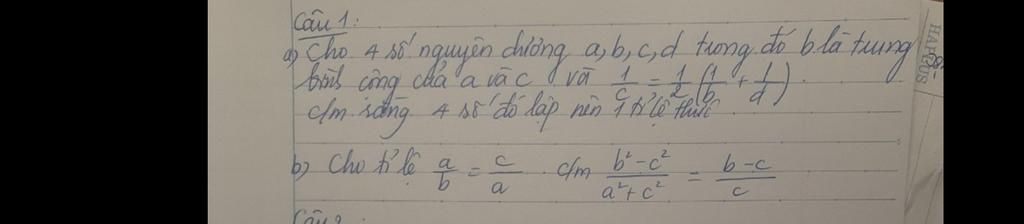 Câu 1:
a) Cho 4 số nguyên dương a, b, c, d trong đó b là trung
bình cộng của a và c và 1/c = 1/2 (1/b + 1/d).
c/m rằng 4 số đó lập nên 1 tỉ lệ thức
b) Cho tỉ lệ a/b = c/a c/m (b² - c²)/(a² + c²) = (b - c)/c
Câu 2
HAPLUS